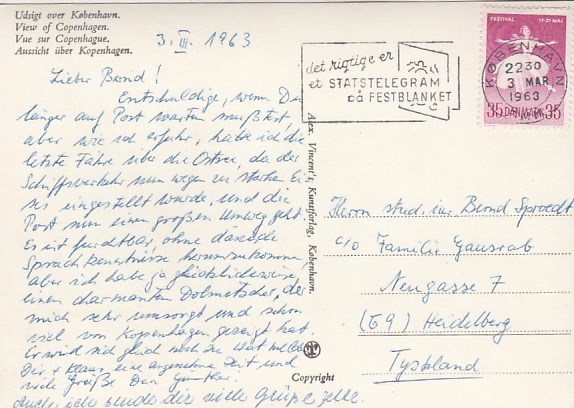 Udsigt over København.
View of Copenhagen.
Vue sur Copenhague.
Aussicht über Kopenhagen.
3. III. 1963
Lieber Bernd!
Entschuldige, wenn Du
länger auf Post warten mußtest,
aber wie ich erfuhr, habe ich die
letzte Fähre über die Ostsee, da der
Schiffsverkehr nun wegen zu starken Ei-
ses eingestellt wurde, und die
Post nun einen großen Umweg geht.
Es ist furchtbar, ohne dänische
Sprachkenntnisse herumzukommen,
aber ich habe ja glücklicherweise
einen charmanten Dolmetscher, der
mich sehr umsorgt und schon
viel von Kopenhagen gezeigt hat.
Er wird sich gleich noch
Dir + Klaus eine angenehme Zeit und
viele Grüße Dein Günther.
Auch ich sende dir viele Grüße
Alex. Vincent's Kunstforlag, København.
Copyright
det rigtige er
et STATSTELEGRAM
på FESTBLANKET
FESTIVAL 17-31 MAJ
KØBENHAVN
2230
3 MAR
1963
35 DANMARK 35
Herrn stud. ing. Bernd
c/o Familie
Neugasse 7
(69) Heidelberg
Tyskland